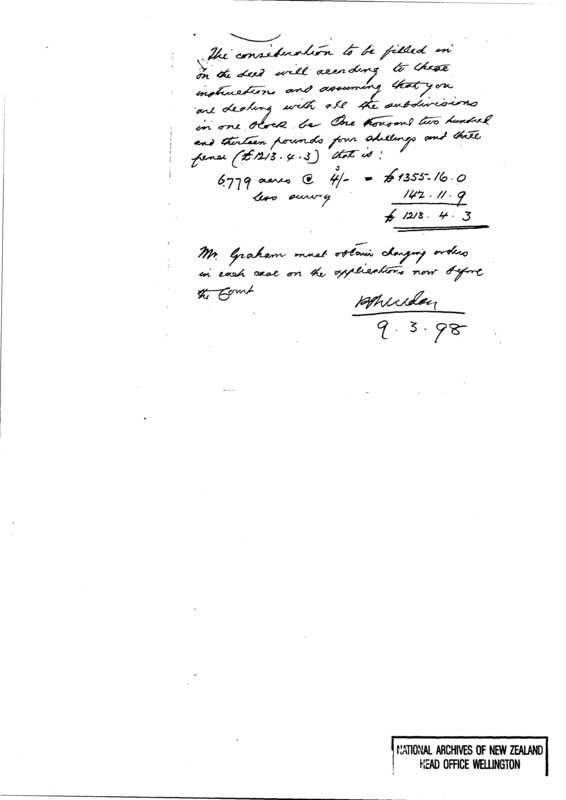 The consideration to be filled in
in the deed will according to these
instructions and assuming that you
are dealing with all the subdivisions
in one block be One thousand two hundred
and thirteen pounds four shillings and three
pence (£1213.4.3) that is:
6779 acres @ 4/- = £1355-16.0
Less survey 142.11.9
£ 1213.4.3
Mr. Graham must obtain charging orders
in each case on the applications now before
the Court
9.3.98
NATIONAL ARCHIVES OF NEW ZEALAND
HEAD OFFICE WELLINGTON